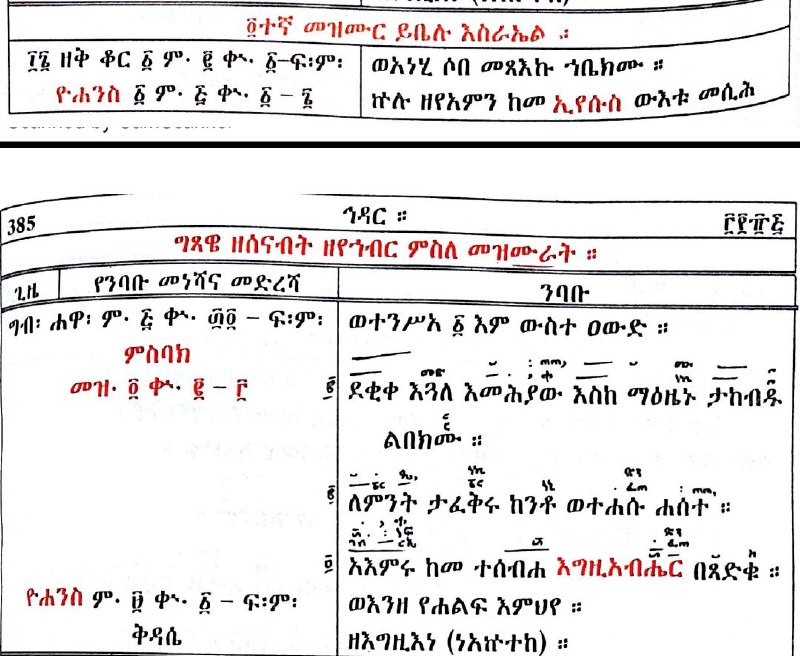 ፬ተኛ መዝሙር ይቤሉ እስራኤል ።
፲፯ ዘቅ ቆር ፩ ም. ፪ ቀ. ፩-ፍ፡ም፡
ወአነሂ ሶበ መጻእኩ ኀቤክሙ ።
ዮሐንስ ፩ ም. ፭ ቀ. ፩ - ፯
ኵሉ ዘየአምን ከመ ኢየሱስ ውእቱ መሲሕ
385
ኅዳር ።
፫፻፹፭
ግጻዌ ዘሰናብት ዘየኀብር ምስለ መዝሙራት ።
ጊዜ
የንባቡ መነሻና መድረሻ
ንባቡ
ግብ፡ ሐዋ፡ ም. ፭ ቀ. ፴፬ - ፍ፡ም፡
ወተንሥአ ፩ እም ውስተ ዐውድ ።
ምስባክ
መዝ. ፬ ቀ. ፪ - ፫
ደቂቀ እጓለ እመሕያው እስከ ማዕዜኑ ታከብዱ
ልበክሙ ።
ለምንት ታፈቅሩ ከንቶ ወተሐሱ ሐሰተ ።
አእምሩ ከመ ተሰብሐ እግዚአብሔር በጻድቁ ።
ዮሐንስ ም. ፱ ቀ. ፩ - ፍ፡ም፡
ወእንዘ የሐልፍ እምህየ ።
ቅዳሴ
ዘእግዚእነ (ነአኵተከ) ።